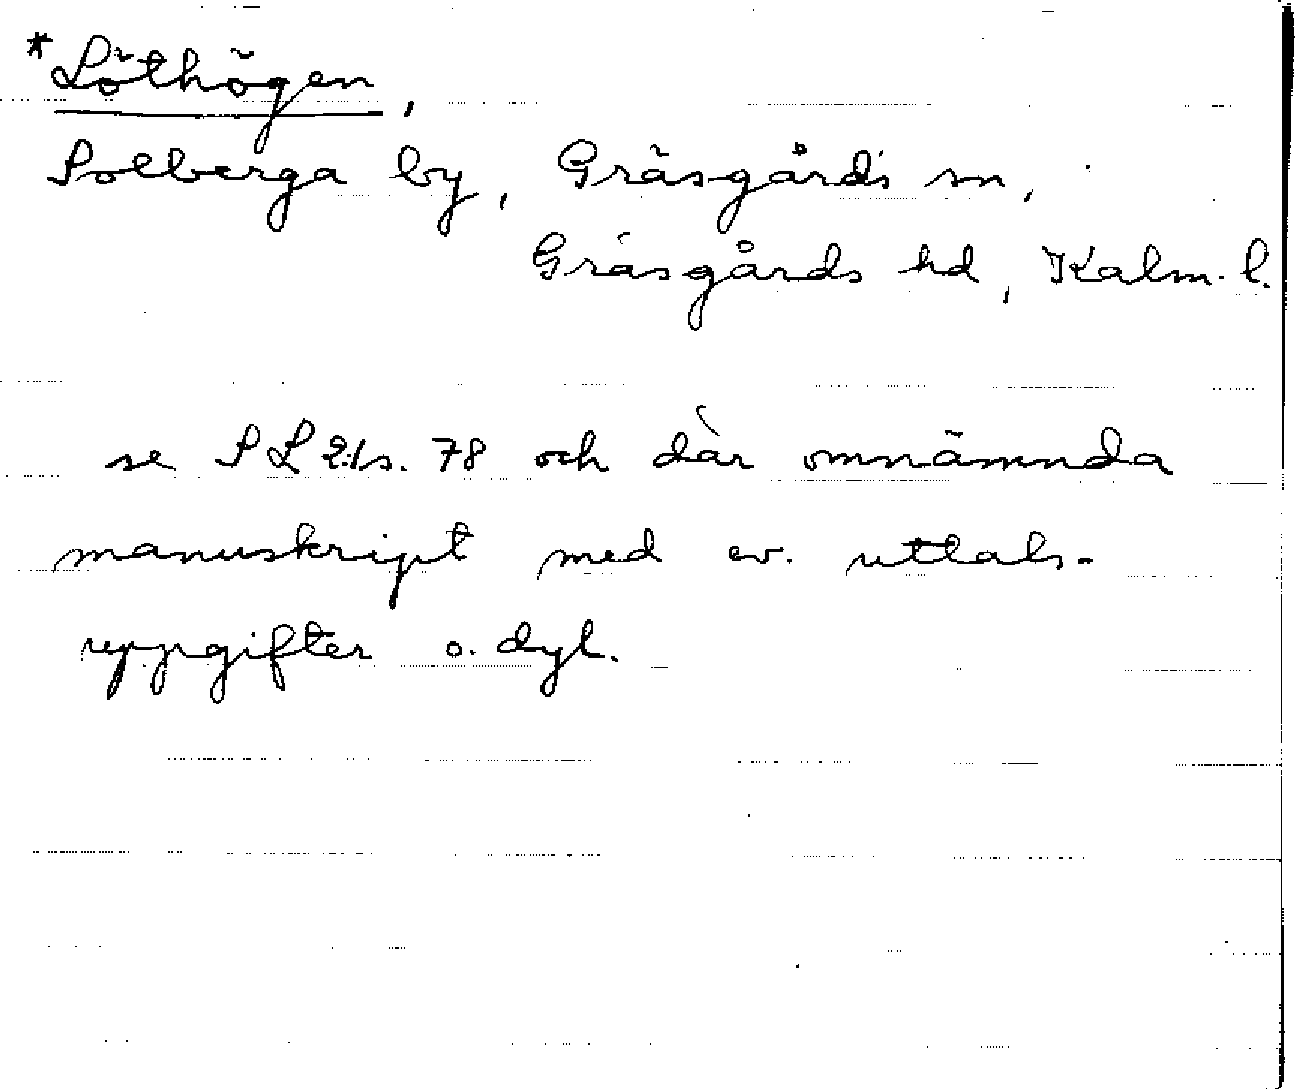 *Löthögen,
Solberga by, Gräsgårds sn,
Gräsgårds hd, Kalm. l.
se SL 2:1 s. 78 och där omnämnda
manuskript med ev. uttals-
uppgifter o. dyl.